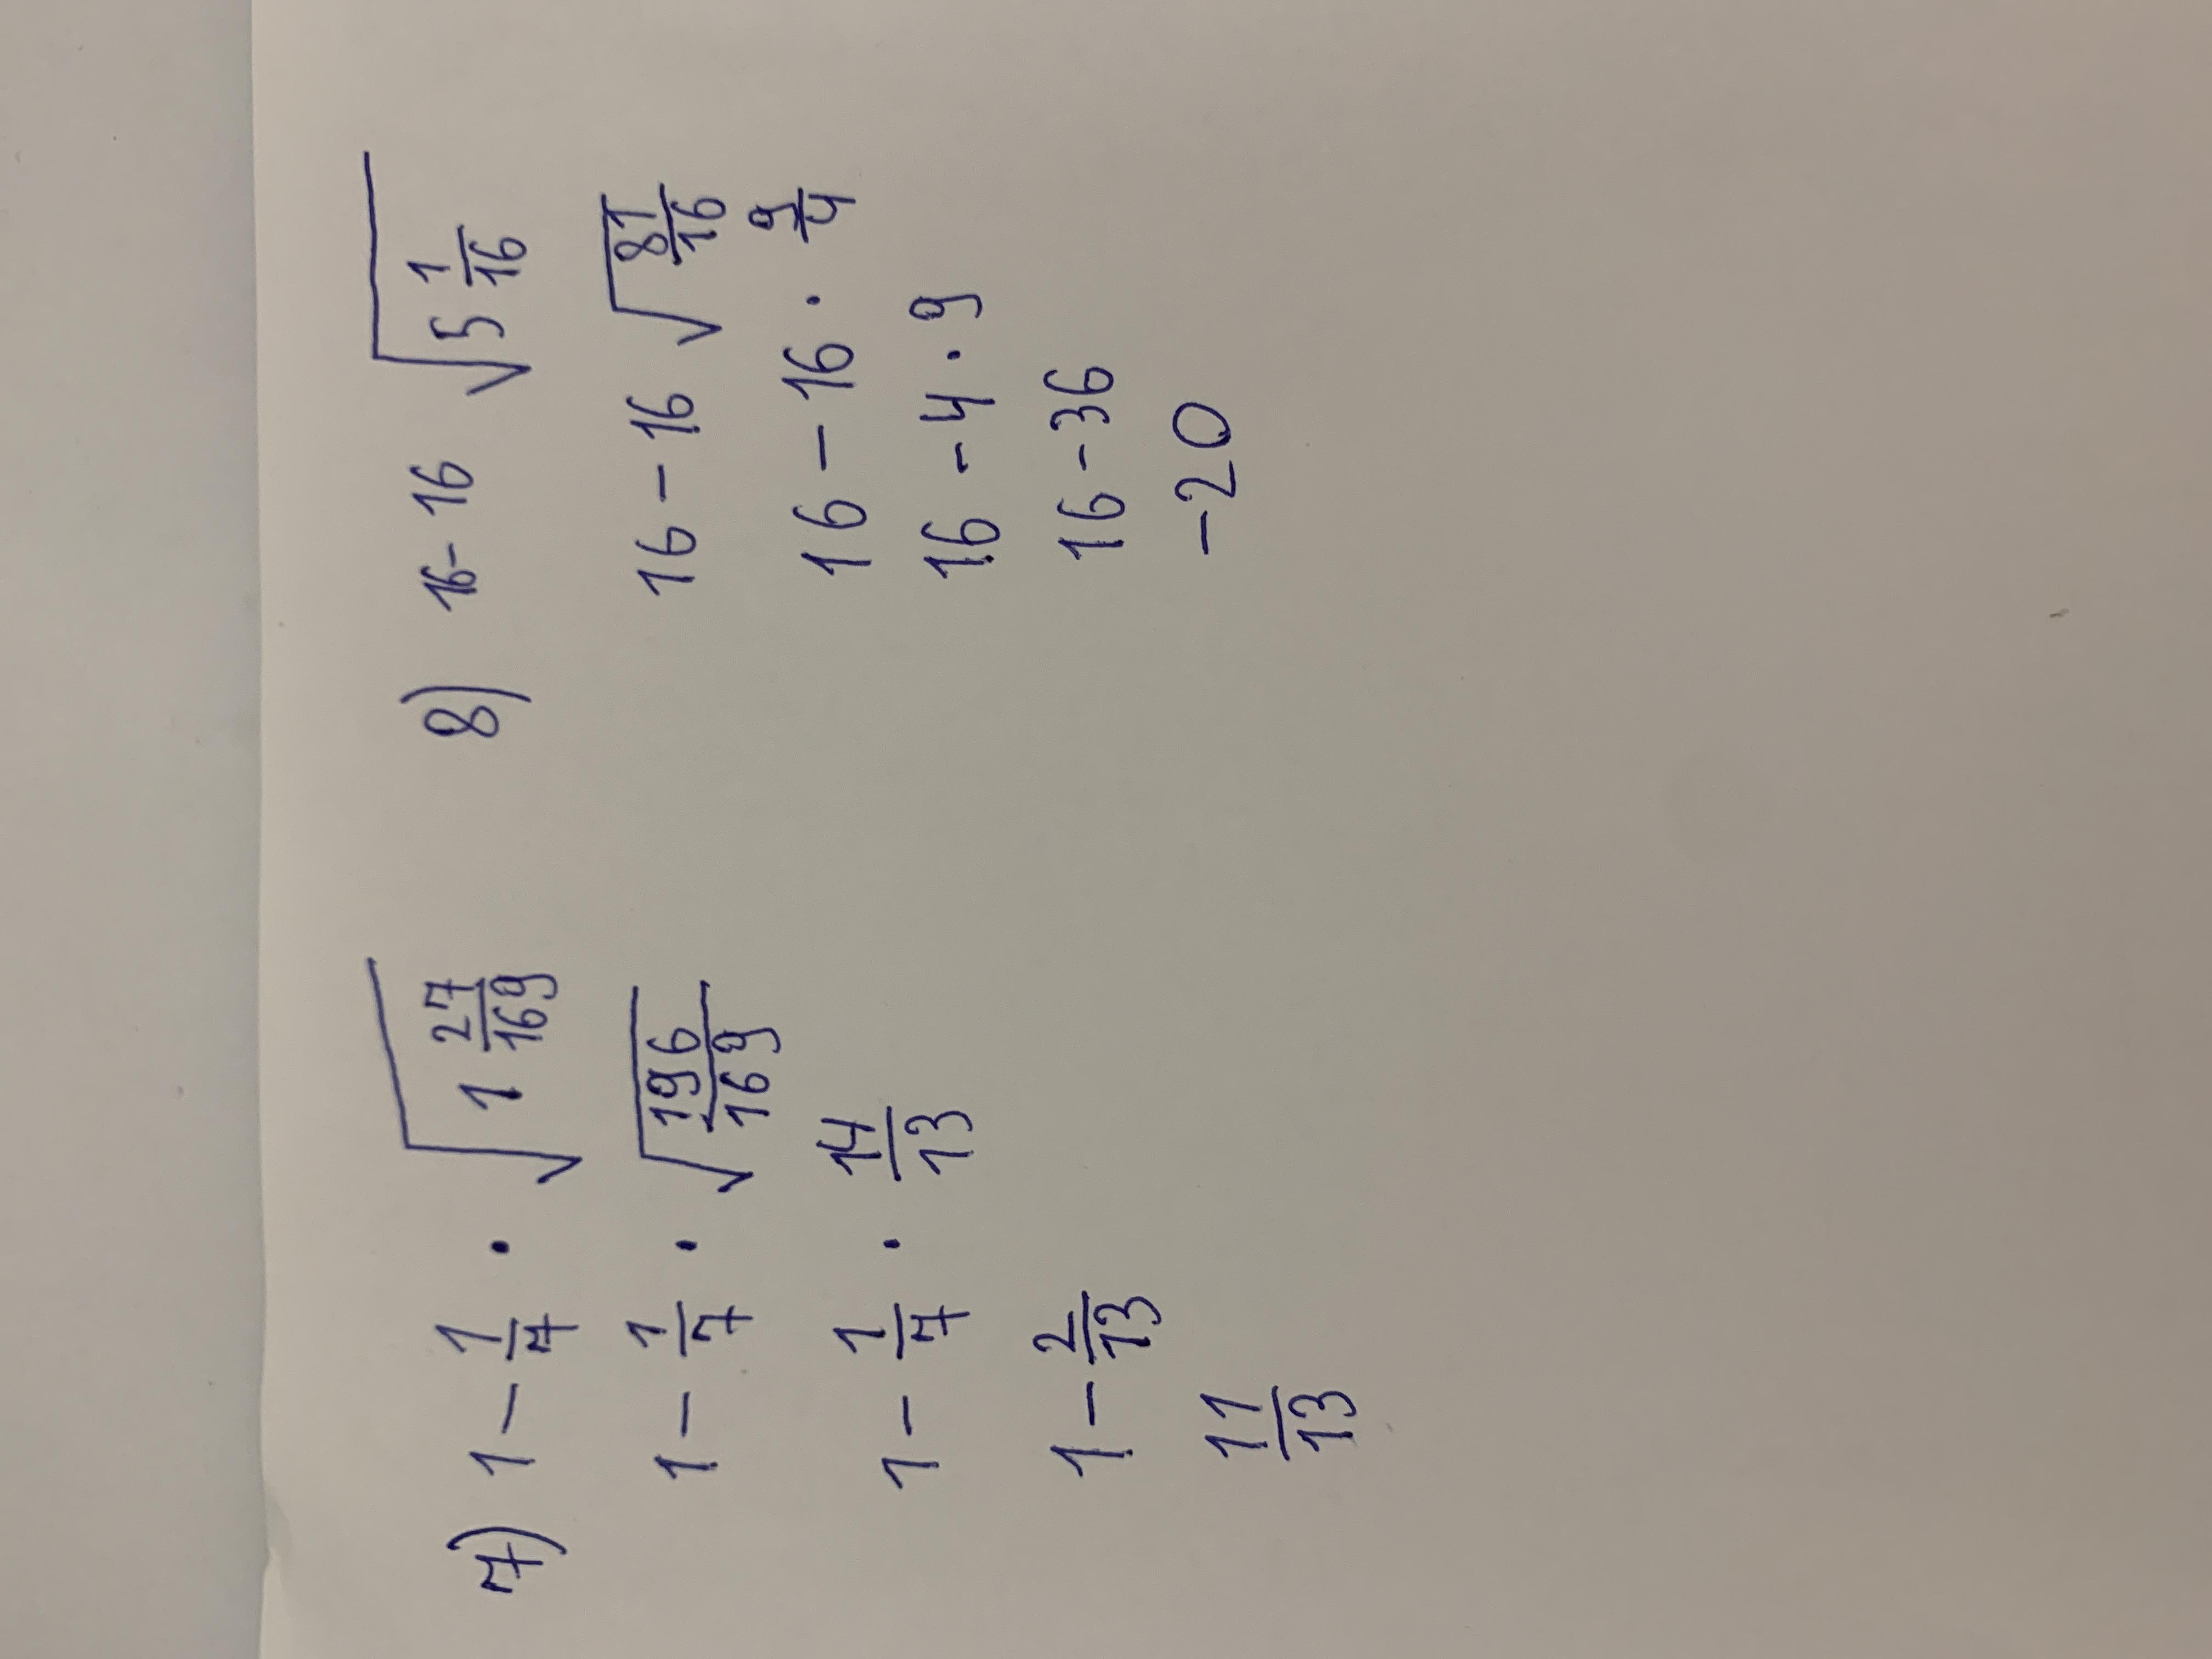 7) 1 - 1/7 · √(1 27/169)
1 - 1/7 · √(196/169)
1 - 1/7 · 14/13
1 - 2/13
11/13
8) 16 - 16 √(5 1/16)
16 - 16 √(81/16)
16 - 16 · 9/4
16 - 4 · 9
16 - 36
-20